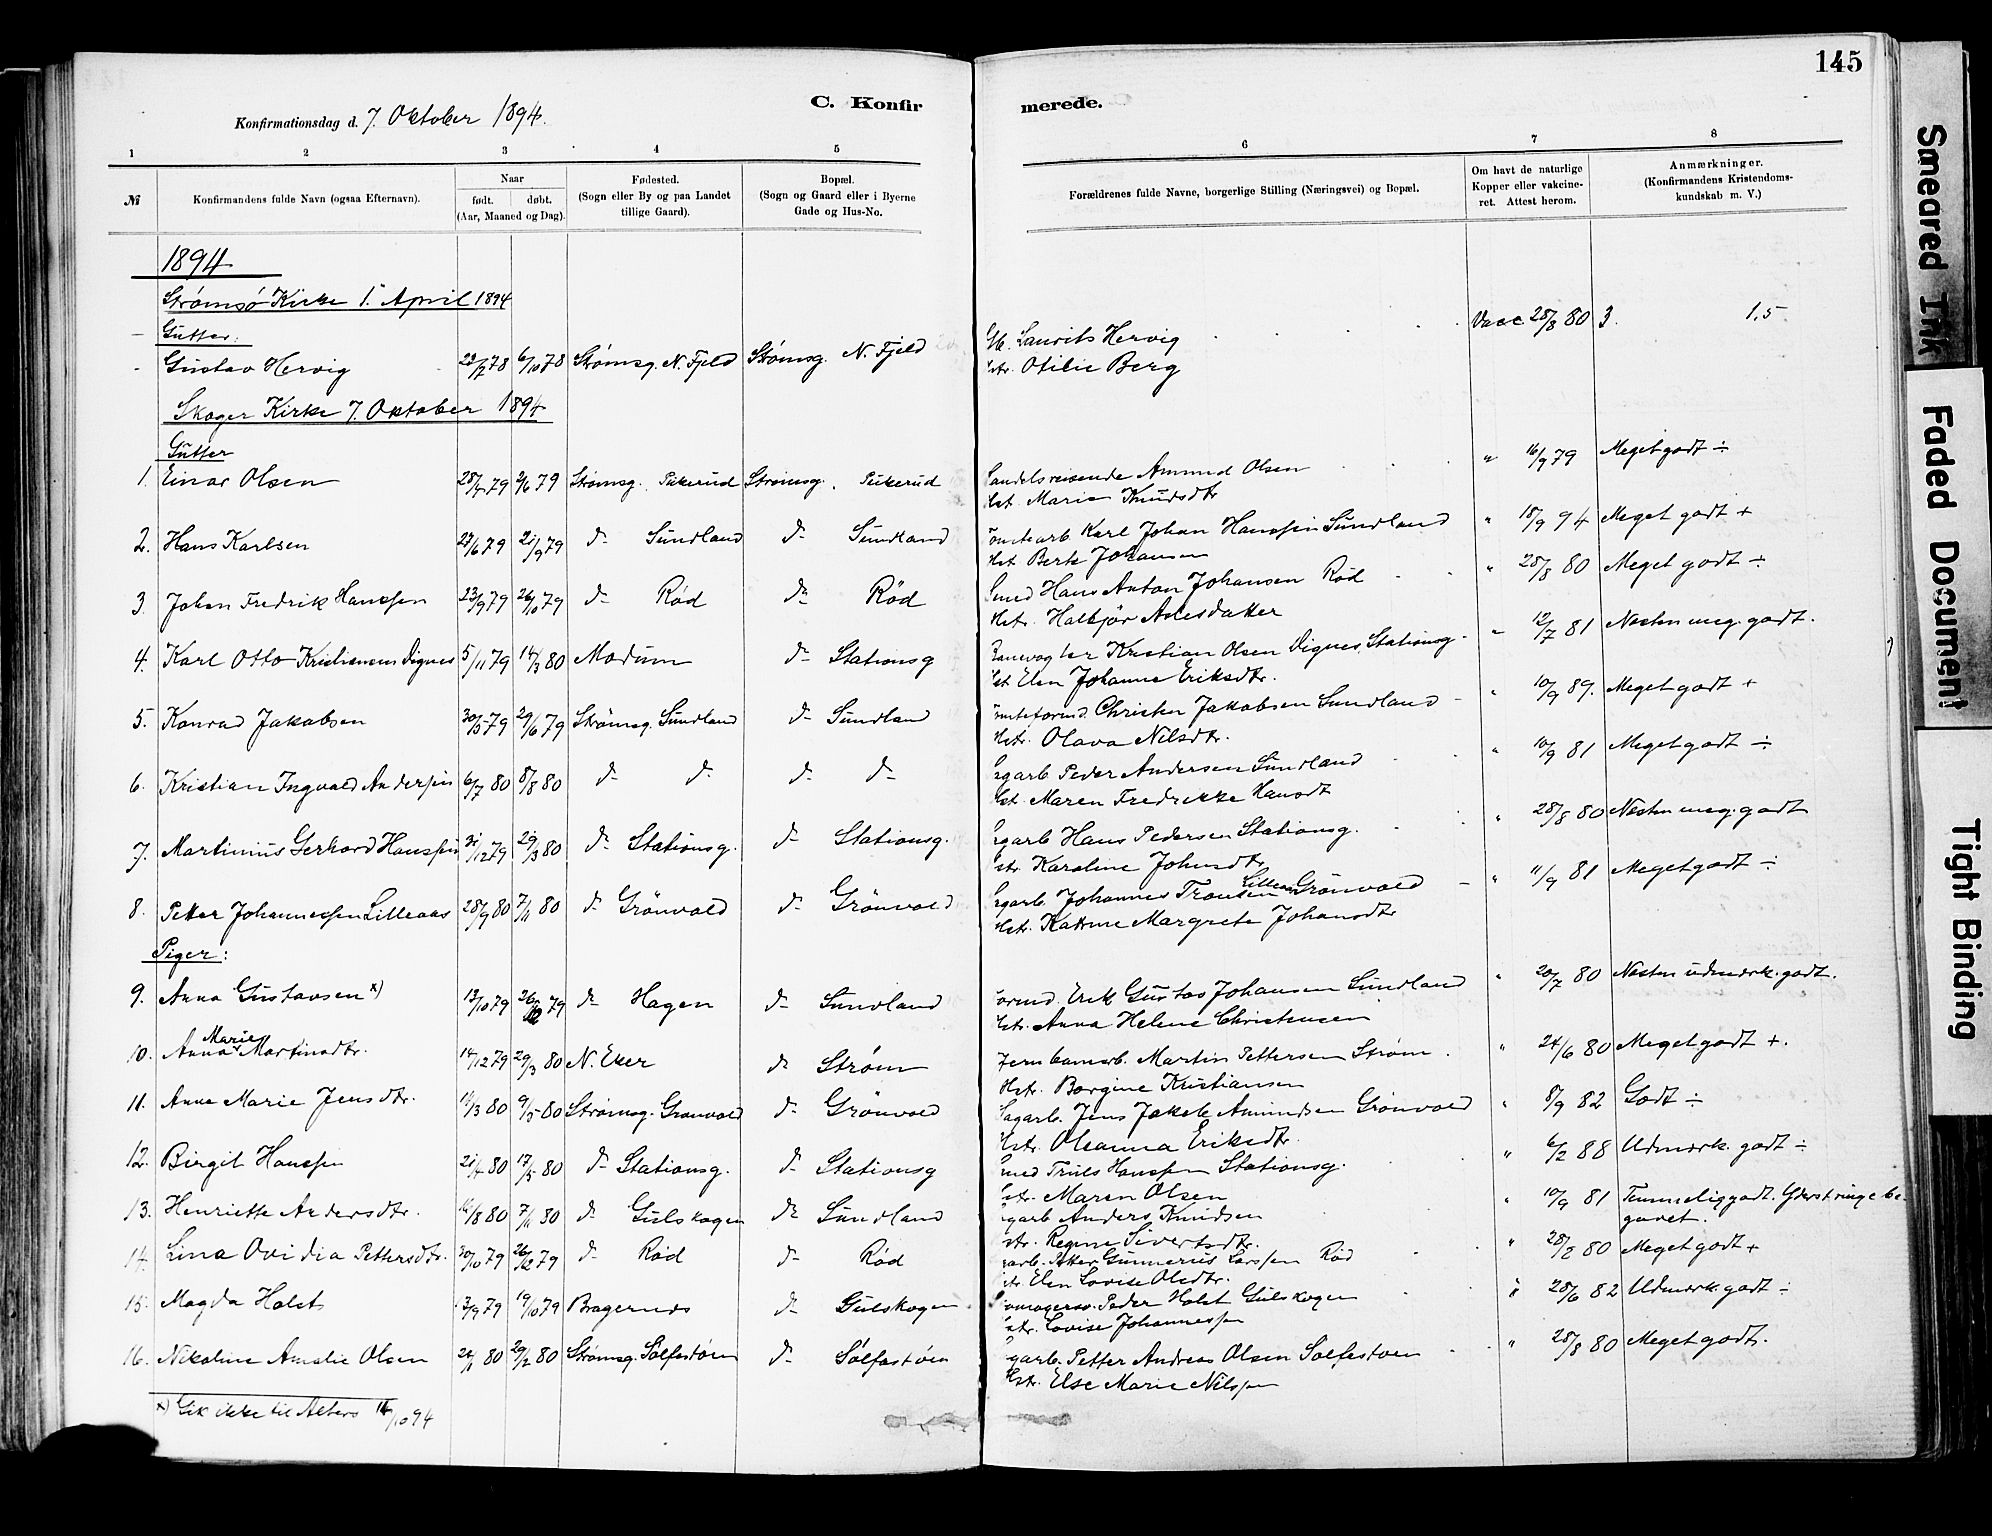 145
C. Konfirmerede.
Konfirmationsdag d. 7. Oktober 1894.
1 2 3 4 5 6 7 8
№ Konfirmandens fulde Navn (ogsaa Efternavn). Naar født. døbt. (Aar, Maaned og Dag). Fødested. (Sogn eller By og paa Landet tillige Gaard). Bopæl. (Sogn og Gaard eller i Byerne Gade og Hus-No. Forældrenes fulde Navne, borgerlige Stilling (Næringsvei) og Bopæl. Om havt de naturlige Kopper eller vakcineret. Attest herom. Anmærkninger. (Konfirmandens Kristendomskundskab m. V.)
1894
Strømsø Kirke 1. April 1894
Gutter:
Gustav Hervig 6/10 78 Strømsg. N. Fjeld Strømsg. N. Fjeld Laurits Hervig Vacc 28/8 80 3. 1.5
Otilie Berg
Skoger Kirke 7. Oktober 1894
Gutter
1. Einar Olsen 2/6 79 Strømsg. Pukerud Strømsg. Pukerud Handelsreisende Amund Olsen " 16/9 79 Meget godt ÷
Marie Knudsdtr
2. Hans Karlsen 27/6 79 21/9 79 do Sundland do Sundland Karl Johan Hanssen Sundland " 18/9 94 Meget godt +
Berte Johansen
3. Johan Fredrik Hanssen 23/9 79 26/10 79 do Rød do Rød Smed Hans Anton Johansen Rød " 28/8 80 Meget godt ÷
Halbjør Anesdatter
4. Karl Otto Kristiansen Dignes 5/11 79 14/3 80 Modum do Stationsg Banevogter Kristian Olsen Dignes, Stationsg " 12/7 81 Nesten meg. godt.
Elen Johanne Eriksdtr.
5. Konrad Jakobsen 30/5 79 29/6 79 Strømsg. Sundland do Sundland Tomteformd. Christen Jakobsen Sundland " 10/9 89. Meget godt +
Hstr. Olava Nilsdtr.
6. Kristian Ingvald Anderssen 6/7 80 8/8 80 do do do do Sagarb. Peder Andersen Sundland " 10/9 81 Meget godt ÷
Maren Fredrikke Hansdt
7. Martinius Gerhard Hanssen 31/12 79 29/3 80 do Stationsg. do Stationsg. Sagarb Hans Pedersen Stationsg. " 28/8 80 Nesten meg. godt
Karoline Johnsdtr
8. Petter Johannessen Lilleaas 28/9 80 7/11 80 do Grønvold do Grønvold Sagarb. Johannes Tronsen Lilleaas Grønvold " 11/9 81 Meget godt ÷
Hstr. Katrine Margrete Johansdtr
Piger:
9. Anna Gustavsen x) 13/10 79 26/12 79 do Hagen do Sundland Formd. Erik Gustav Johansen Sundland " 20/7 80 Nesten udmærk. godt.
Hstr. Anna Helene Christensen
10. Anna Marie Martinsdtr. 14/12 79 29/3 80 N. Eker do Strøm Jernbanearb. Martin Pettersen Strøm. " 24/6 80 Meget godt +.
Hstr. Borgine Kristiansen
11. Anne Marie Jensdtr. 14/3 80 9/5 80 Strømsg. Grønvold do Grønvold Sagarb. Jens Jakob Amundsen Grønvold " 8/9 82 Godt ÷
Hstr. Oleanna Eriksdtr.
12. Birgit Hanssen 21/4 80 17/5 80 do Stationsg. do Stationsg Smed Truls Hanssen Stationsg. " 6/2 88 Udmærk. godt ÷
Hstr. Maren Olsen
13. Henriette Andersdtr. 7/11 80 do Gulskogen do Sundland Sagarb Anders Knudsen " 10/9 81 Temmelig godt. Yderst ringe begavet.
Hstr. Regine Sivertsdtr.
14. Lina Ovidia Pettersdtr. 30/10 79 26/12 79 do Rød do Rød Sagarb. Petter Gunnerius Larssen Rød " 28/2 80 Meget godt +
Hstr. Elen Lovise Olsdtr.
15. Magda Holst 13/9 79 19/10 79 Bragernes do Gulskogen Peder Holst Gulskogen " 28/6 82 Udmærk. godt ÷
Hstr. Lovise Johannessen
16. Nikoline Amalie Olsen 29/2 80 Strømsg. Solfestøen do Solfestøen Sagarb. Petter Andreas Olsen Solfestøen " 28/8 80 Meget godt.
Hstr. Else Marie Nilssen
x) Gik ikke til Alters 14/10 94
Smeared Ink
Faded Document
Tight Binding